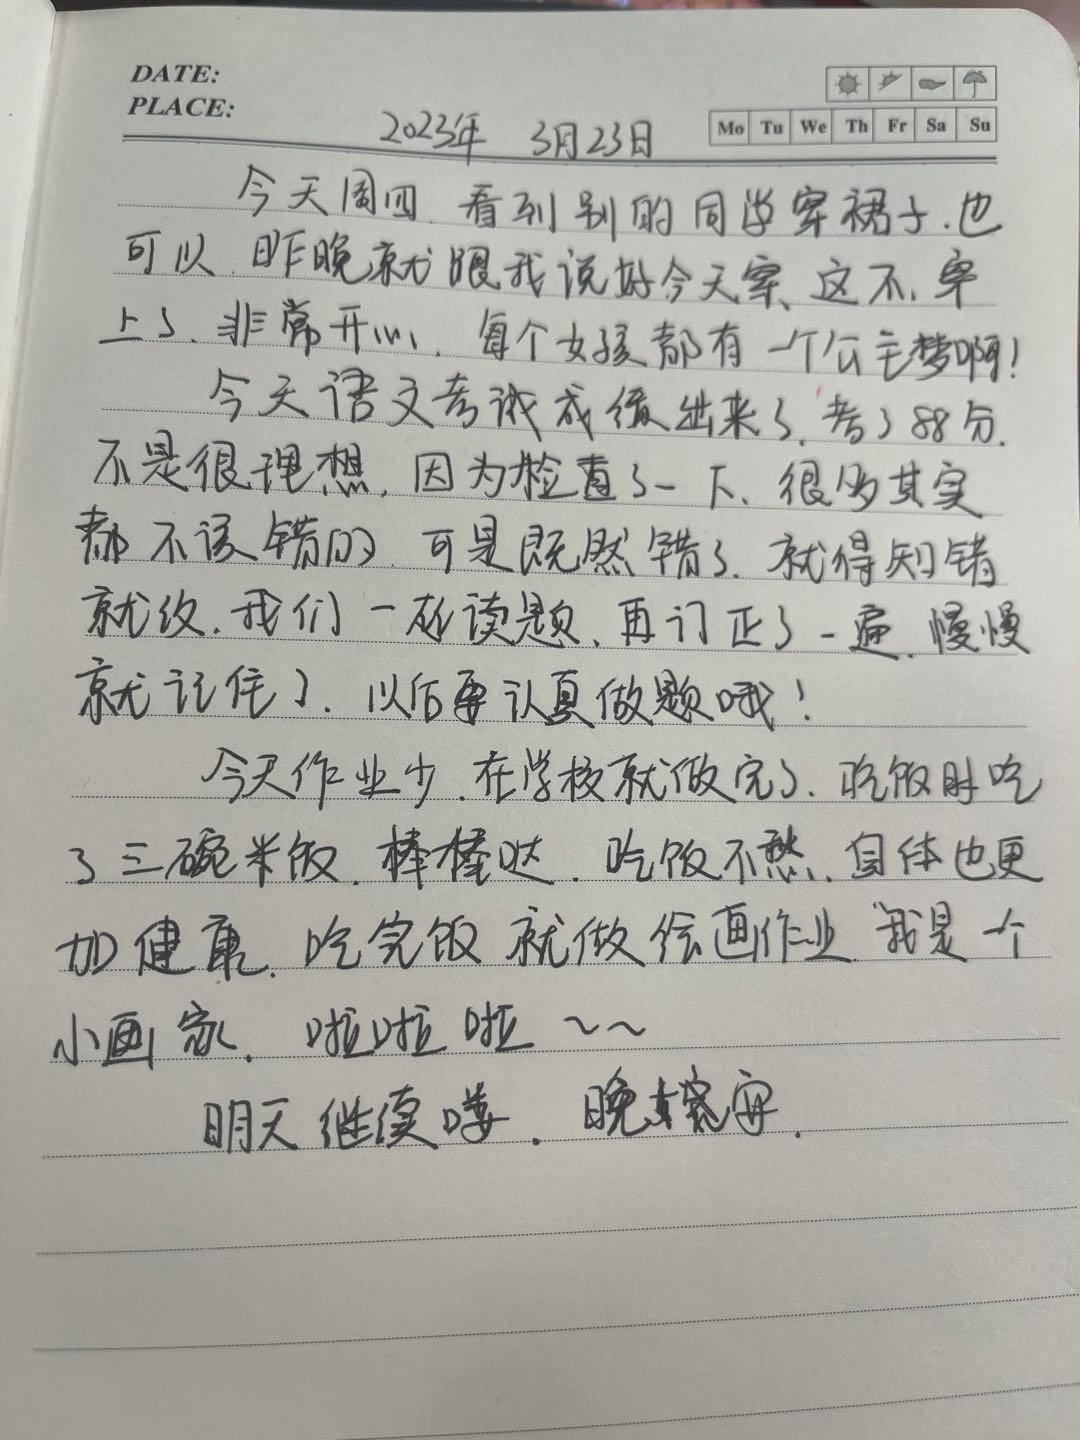 DATE:
PLACE:
Mo Tu We Th Fr Sa Su
2023年 3月23日
今天周四.看到别的同学穿裙子.也
可以.昨晚就跟我说好今天穿、这不、穿
上了、非常开心、每个女孩都有一个公主梦啊!
今天语文考试成绩出来了.考了88分.
不是很理想.因为检查了一下、很多其实
都不该错的.可是既然错了.就得知错
就改.我们一起读题、再订正了一遍.慢慢
就记住了.以后要认真做题哦!
今天作业少.在学校就做完了.吃饭时吃
了三碗米饭.棒棒哒.吃饭不愁.身体也更
加健康.吃完饭就做绘画作业.我是一个
小画家.啦啦啦~~
明天继续喽.晚安.